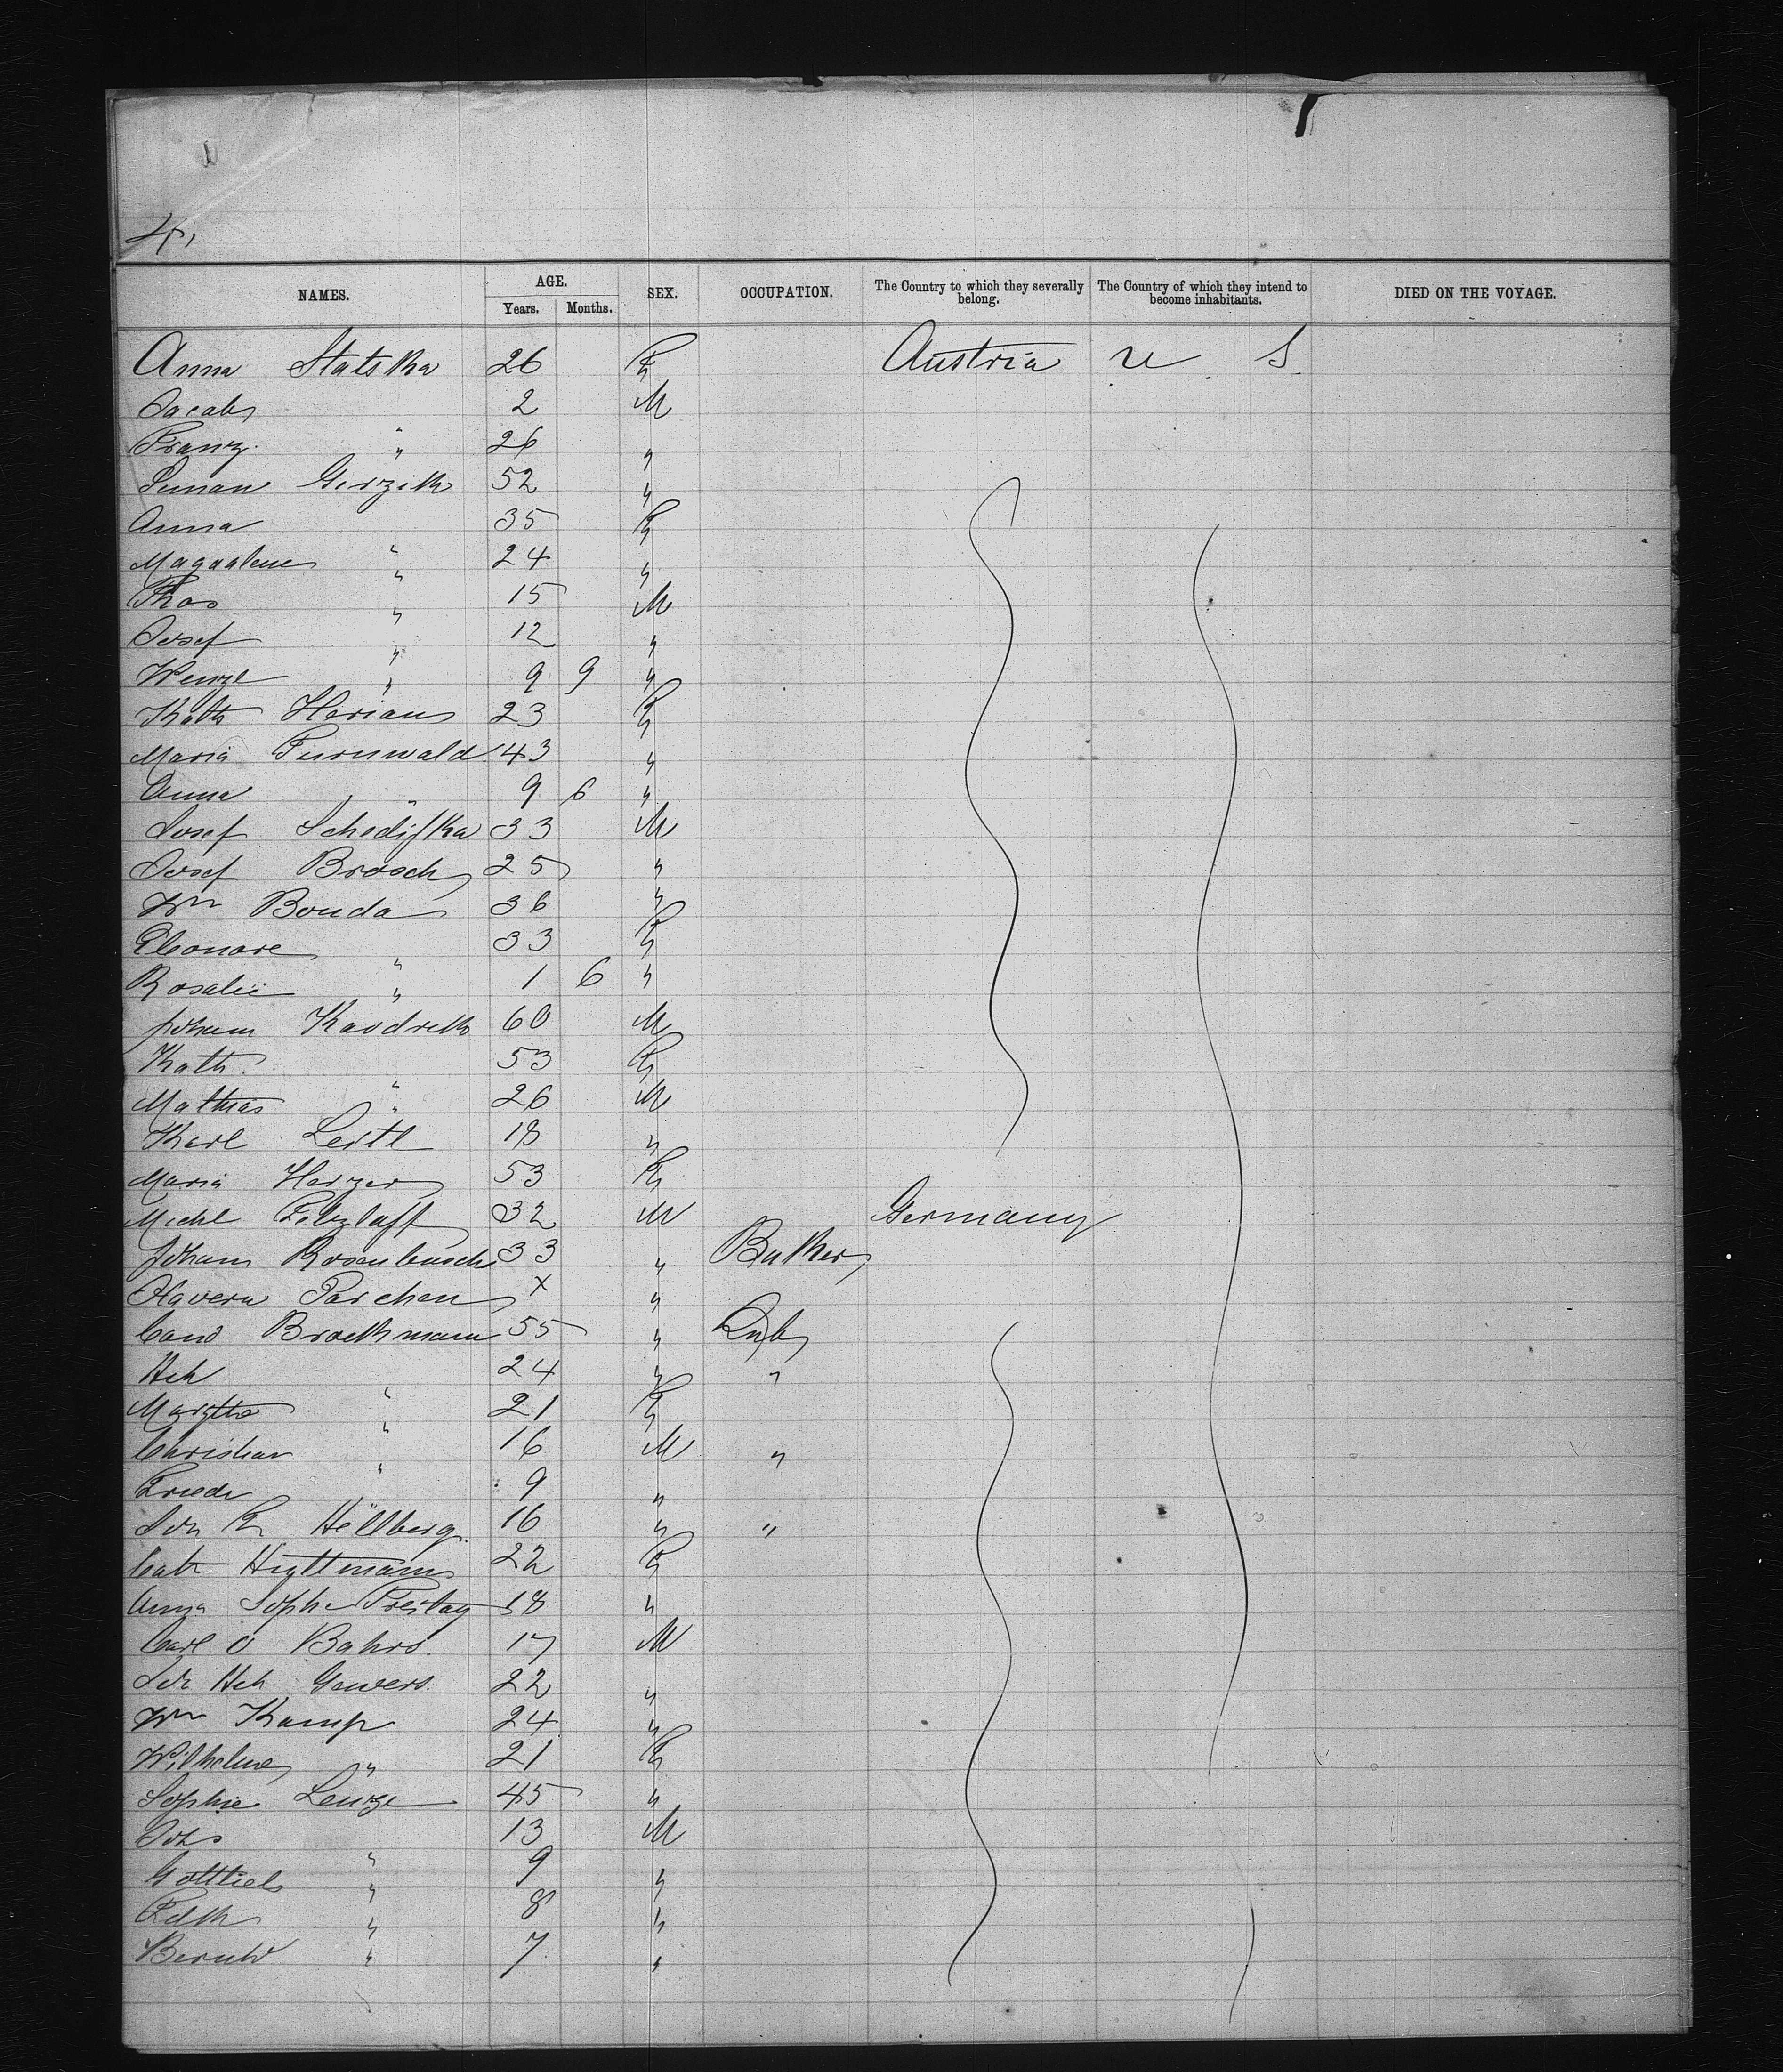 4,
NAMES. AGE. Years. Months. SEX. OCCUPATION. The Country to which they severally belong. The Country of which they intend to become inhabitants. DIED ON THE VOYAGE.
Anna Statska 26 F Austria U S
Jacob " 2 M
Franz " 26 "
Girzik 52 "
Anna " 35 F
Magdalene " 24 "
Thos " 15 M
Josef " 12 "
Wenzl " 9 9 "
Kath Herian 23 F
Maria Turnwald 43 "
Anna " 9 6 "
Josef 33 M
Josef Brosch 25 "
Wm Bouda 36 "
Eleonore " 33 F
Rosalie " 1 6 "
Johann 60 M
Kath. " 53 F
Mathias " 26 M
Karl Leitl 18 "
Maria Herzer 53 F
Michl 32 M Germany
Johann Rosenbusch 33 " Butker
Parchen x "
Brockmann 55 "
Hch " 24 " "
Margthe " 21 F
Christian " 16 M "
Friedr " 9 "
Joh F Hellberg. 16 " "
Cath Huttmann 22 F
Anna Soph Freitag 18 "
Carl O Bahrs. 17 M
Joh Hch Gewers. 22 "
Wm Kamp 24 "
Wilhelme " 21 F
Sophie Lenze 45 "
Johs " 13 M
Gottlieb " 9 "
" 8 "
Bernhd " 7 "